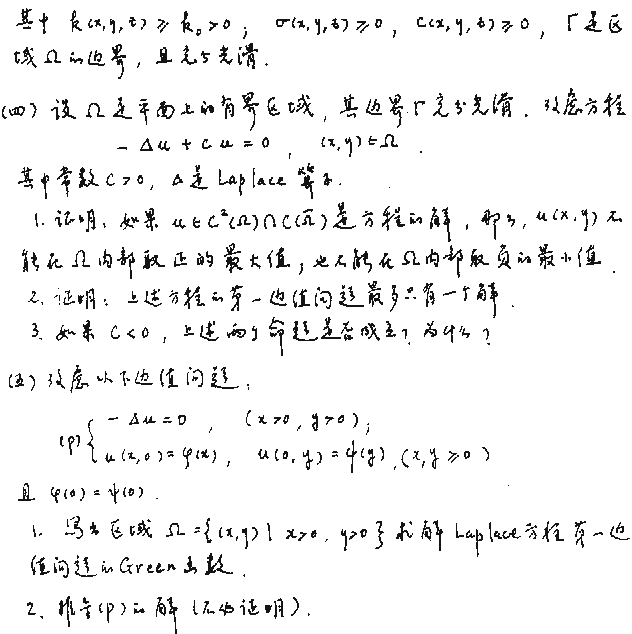 其中 k(x,y,z) ≥ k₀ > 0; σ(x,y,z) ≥ 0, c(x,y,z) ≥ 0, Γ是区
域 Ω 的边界, 且充分光滑.
(四) 设 Ω 是平面上的有界区域, 其边界 Γ 充分光滑. 考虑方程
-Δu + cu = 0, (x,y) ∈ Ω.
其中常数 C > 0, Δ 是 Laplace 算子.
1. 证明: 如果 u ∈ C²(Ω)∩C(Ω̄) 是方程的解, 那么, u(x,y) 不
能在 Ω 内部取正的最大值; 也不能在 Ω 内部取负的最小值.
2. 证明: 上述方程的第一边值问题最多只有一个解.
3. 如果 C < 0, 上述两个命题是否成立? 为什么?
(五) 考虑以下边值问题:
(P) { -Δu = 0, (x>0, y>0);
u(x,0) = φ(x), u(0,y) = ψ(y), (x,y ≥ 0)
且 φ(0) = ψ(0).
1. 写出区域 Ω = {(x,y) | x>0, y>0} 求解 Laplace 方程第一边
值问题的 Green 函数.
2. 推导 (P) 的解 (不必证明).